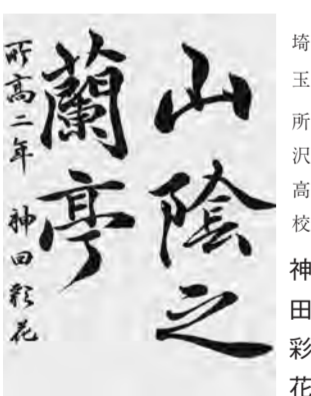 埼玉
所沢高校
神田彩花
山陰之
蘭亭
所高二年 神田彩花